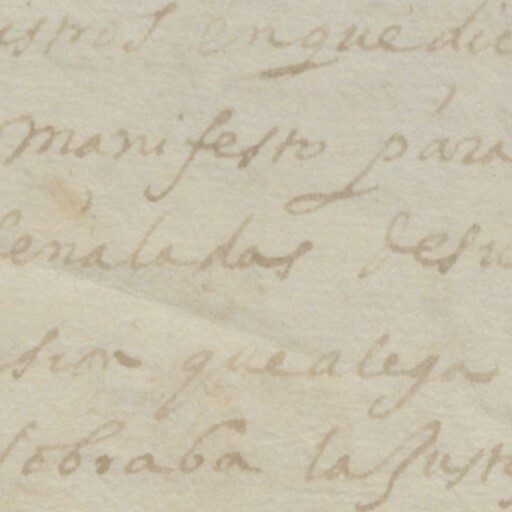 istros enque dic
manifesto para
señaladas desu
sion que alega
sobraba la Justi